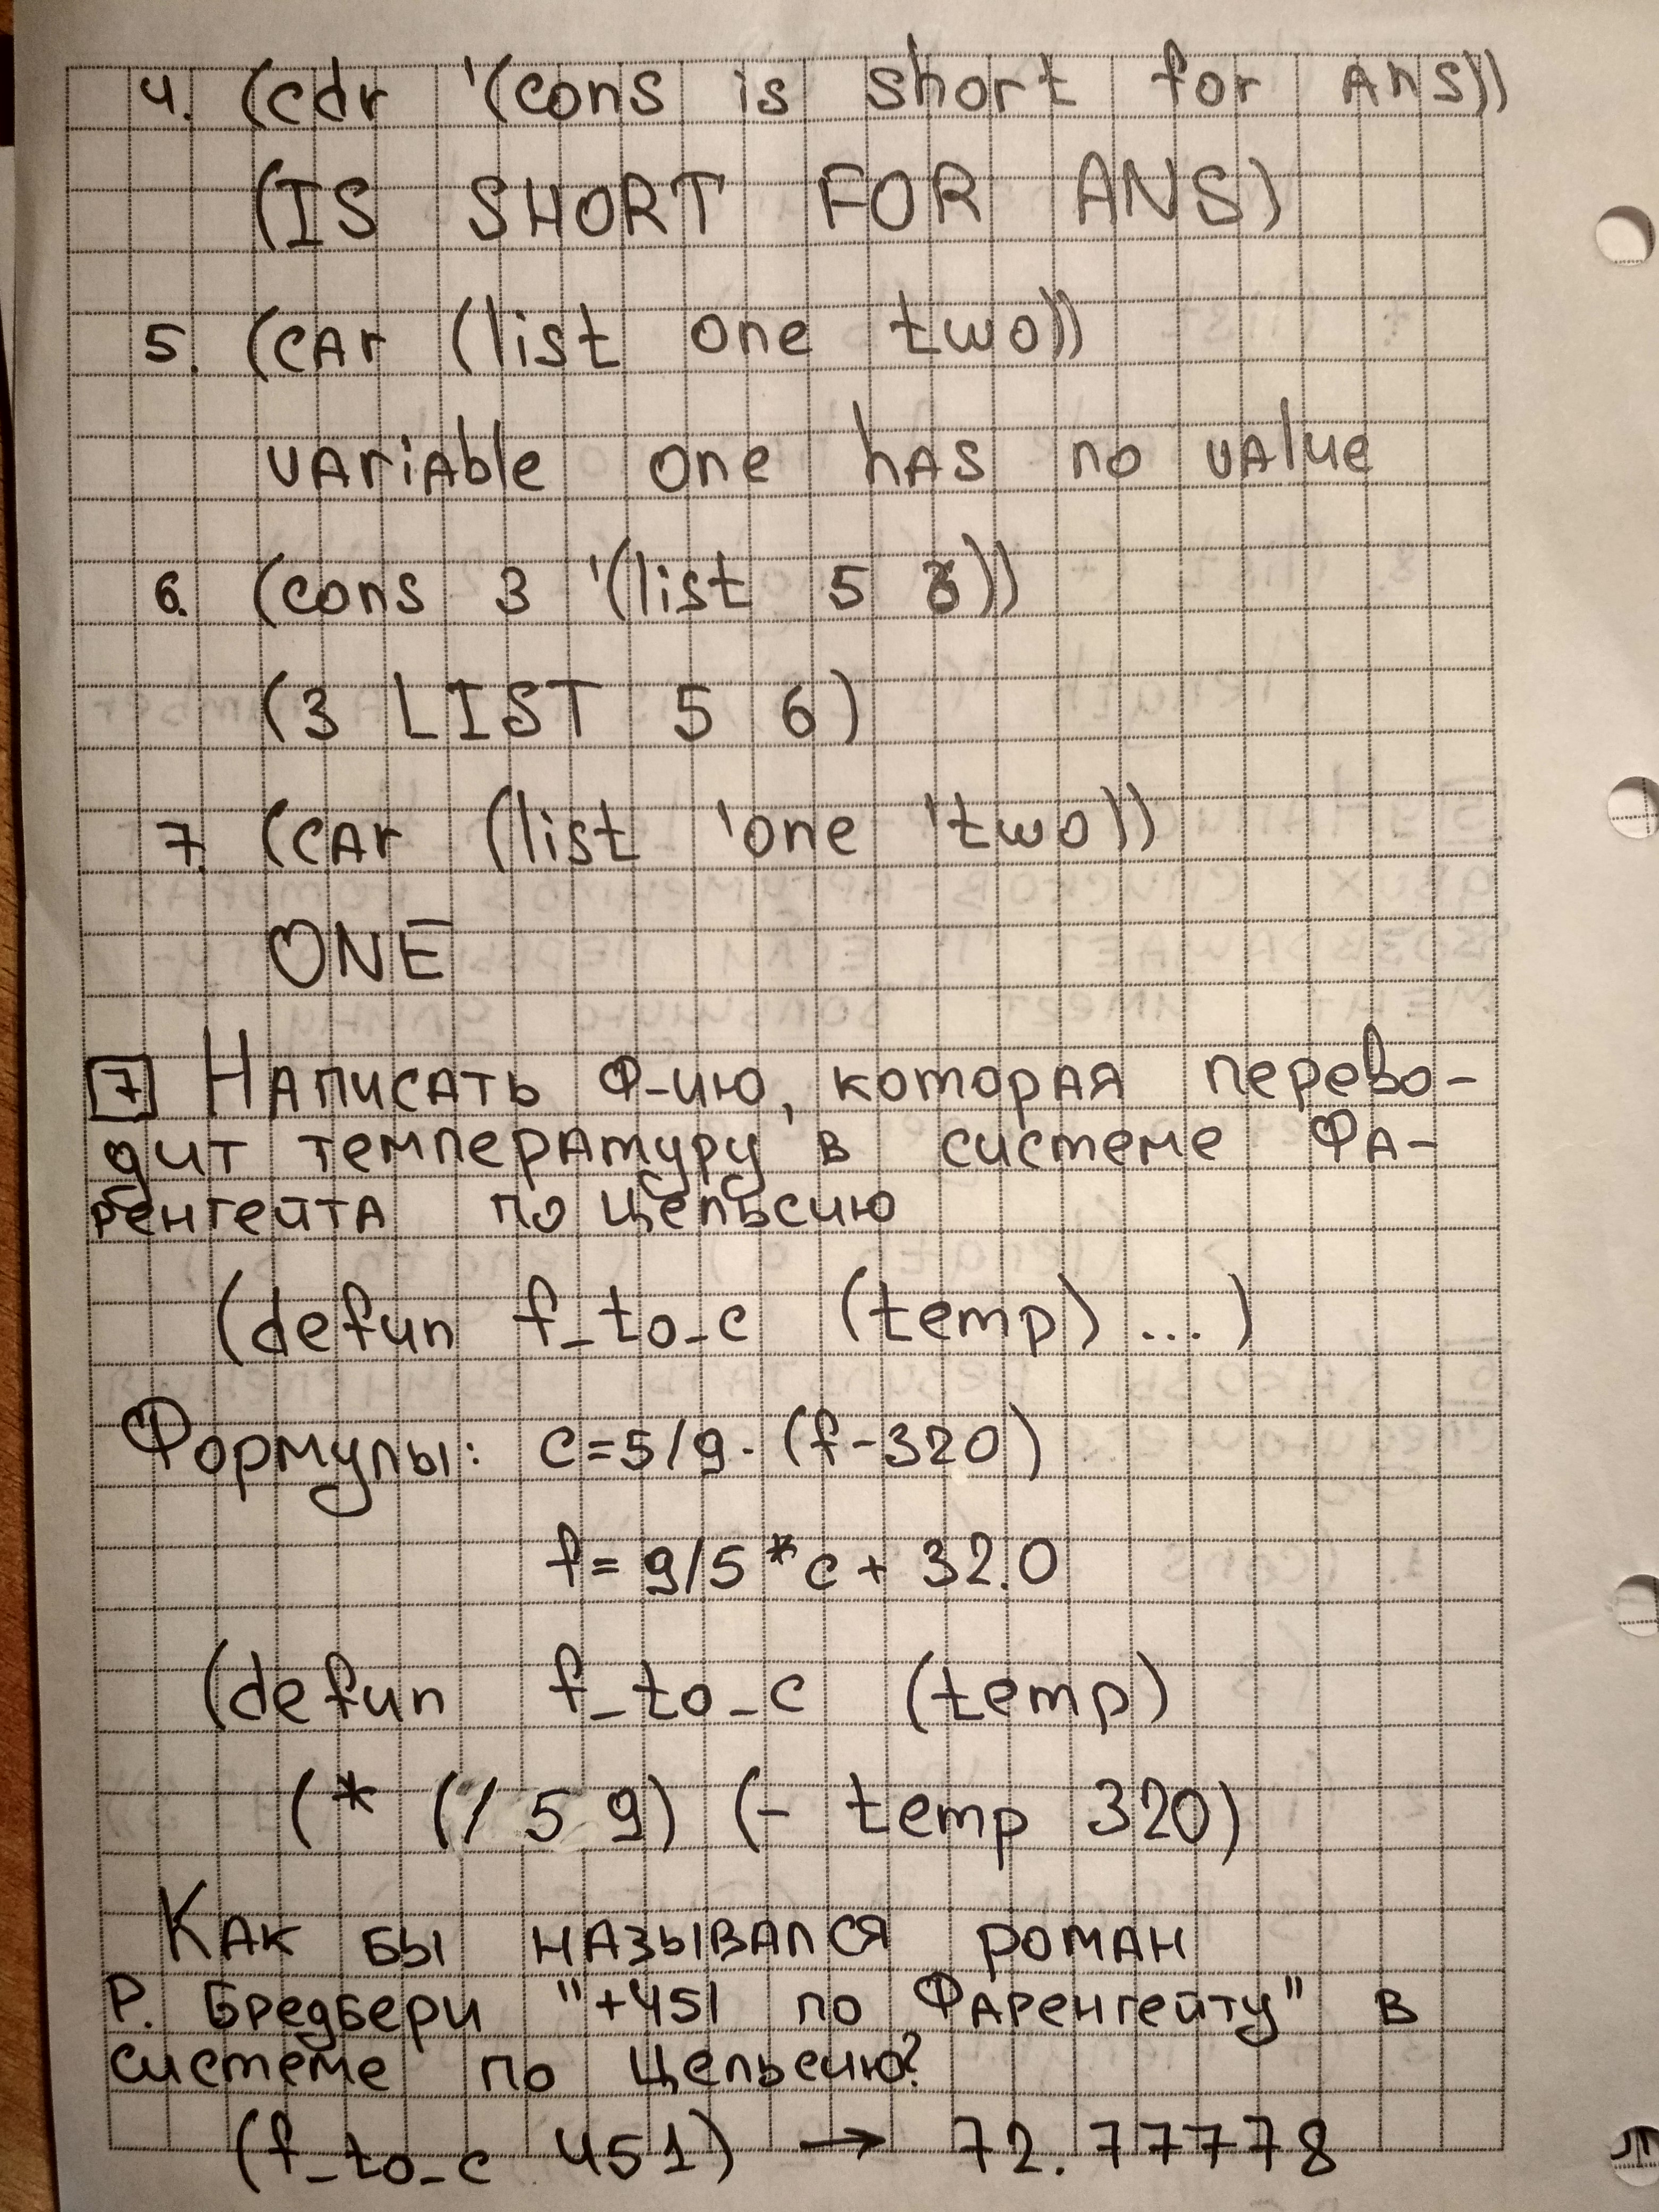 4. (cdr '(cons is short for ans))
(IS SHORT FOR ANS)
5. (car (list one two))
variable one has no value
6. (cons 3 '(list 5 6))
(3 LIST 5 6)
7. (car (list 'one 'two))
ONE
7 Написать ф-ию, которая перево-
дит температуру в системе Фа-
ренгейта по Цельсию
(defun f_to_c (temp) ... )
Формулы: c=5/9· (f-320)
f= 9/5*c+ 32.0
(defun f_to_c (temp)
(* (/ 5 9) (- temp 320)
Как бы назывался роман
Р. Бредбери "+451 по Фаренгейту" в
системе по Цельсию?
(f_to_c 451) → 72.77778